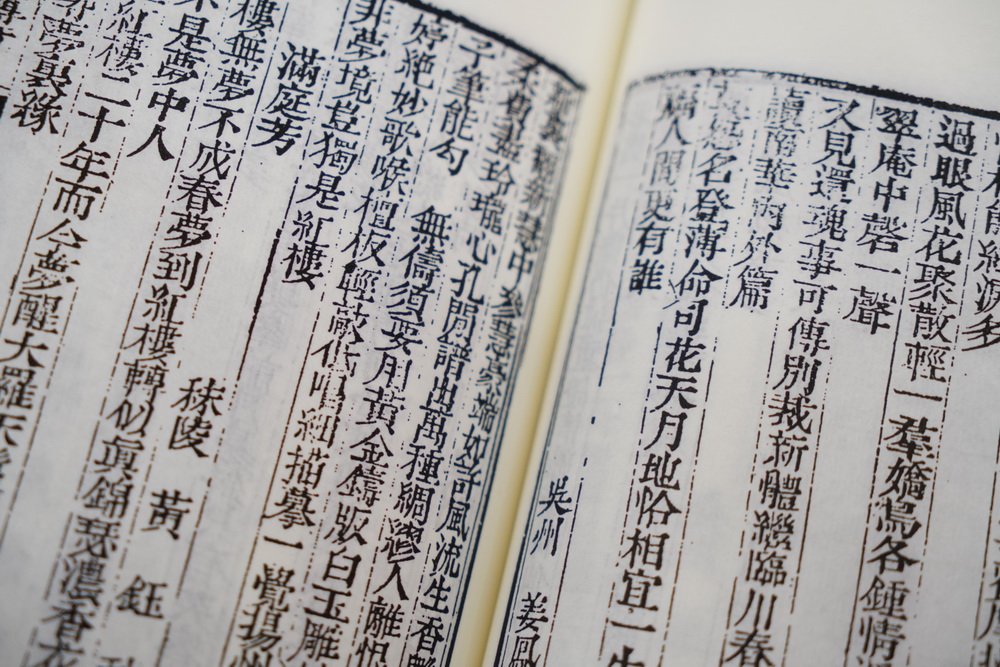 過眼風花聚散輕一羣嬌鳥各鍾情
翠庵中磬一聲
又見還魂事可傳別裁新體繼臨川春
讀南華內外篇
名登薄命司花天月地恰相宜一生
人間更有誰
吳州 姜
新誌中參慧 風流生香
玲瓏心孔閒譜出萬種綢繆人離恨
子筆能勾 無儔須要用黃金鑄版白玉雕
婷絕妙歌喉檀板輕敲低唱細描摹一覺揚州
非夢境豈獨是紅樓
滿庭芳
秣陵 黃 鈺
樓無夢不成春夢到紅樓轉似眞錦瑟濃香
不是夢中人
紅樓二十年而今夢醒大羅天
夢裏緣